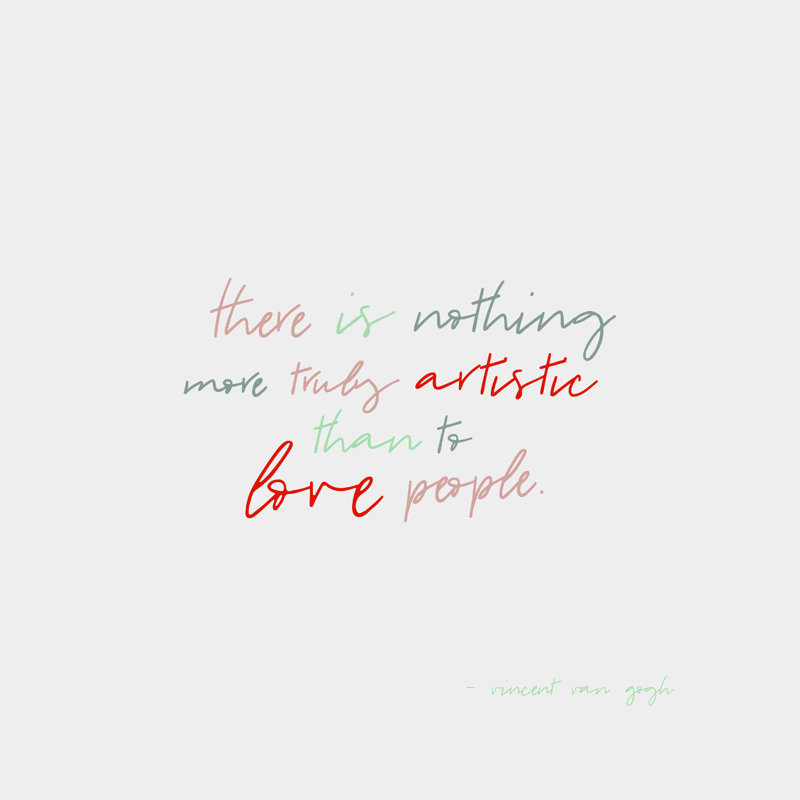 there is nothing
more truly artistic
than to
love people.
- vincent van gogh